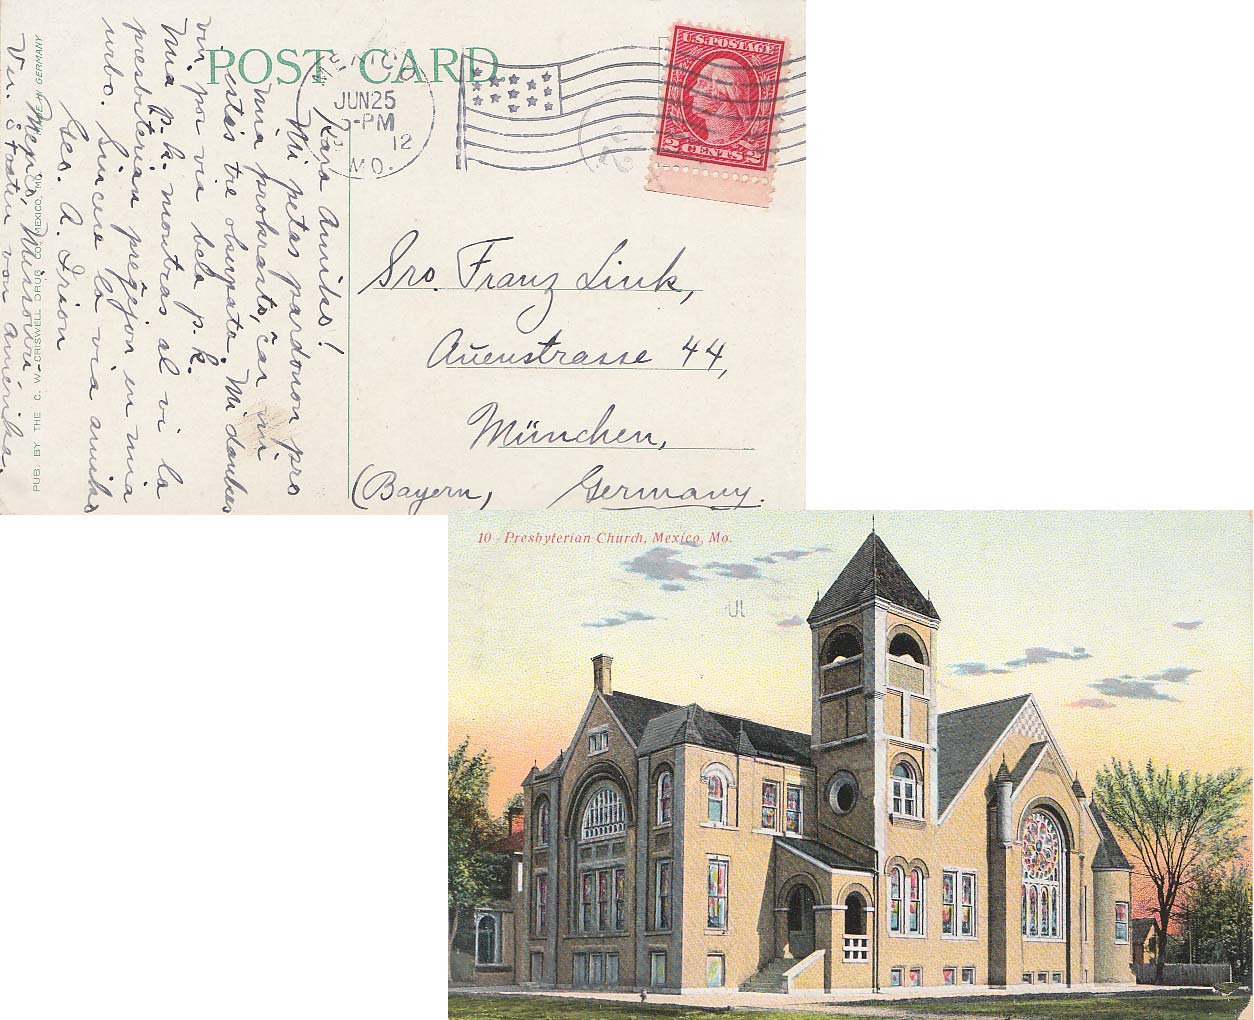 POST CARD
MEXICO
JUN 25
-PM
12
MO.
U.S. POSTAGE
2 CENTS 2
Kara Amiko!
Mi petas pardonon pro
mia prokrasto, ĉar mi
estas tre okupata. Mi dankas
vin por via bela p.k.
Mia p.k. montras al vi la
presbiterian preĝejon en mia
urbo. Sincere la via amiko
Geo. A. Irion
Mexico, Missouri
Un. Ŝtatoj von Amérika.
PUB. BY THE C. W. CRISWELL DRUG CO., MEXICO, MO. MADE IN GERMANY
Sro. Franz Link,
Auenstrasse 44,
München,
(Bayern, Germany.
10 - Presbyterian Church, Mexico, Mo.